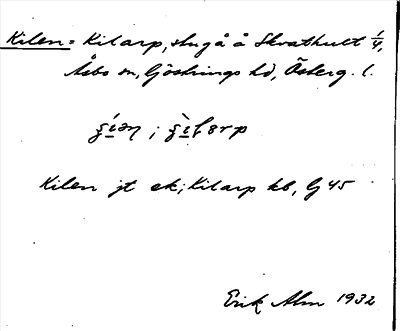 Kilen = Kilarp, stuga å Skrathult 1/4,
Åsbo sn, Göstrings hd, Österg. l.
Kilen jt ek; Kilarp kb, G 45
Erik Alm 1932